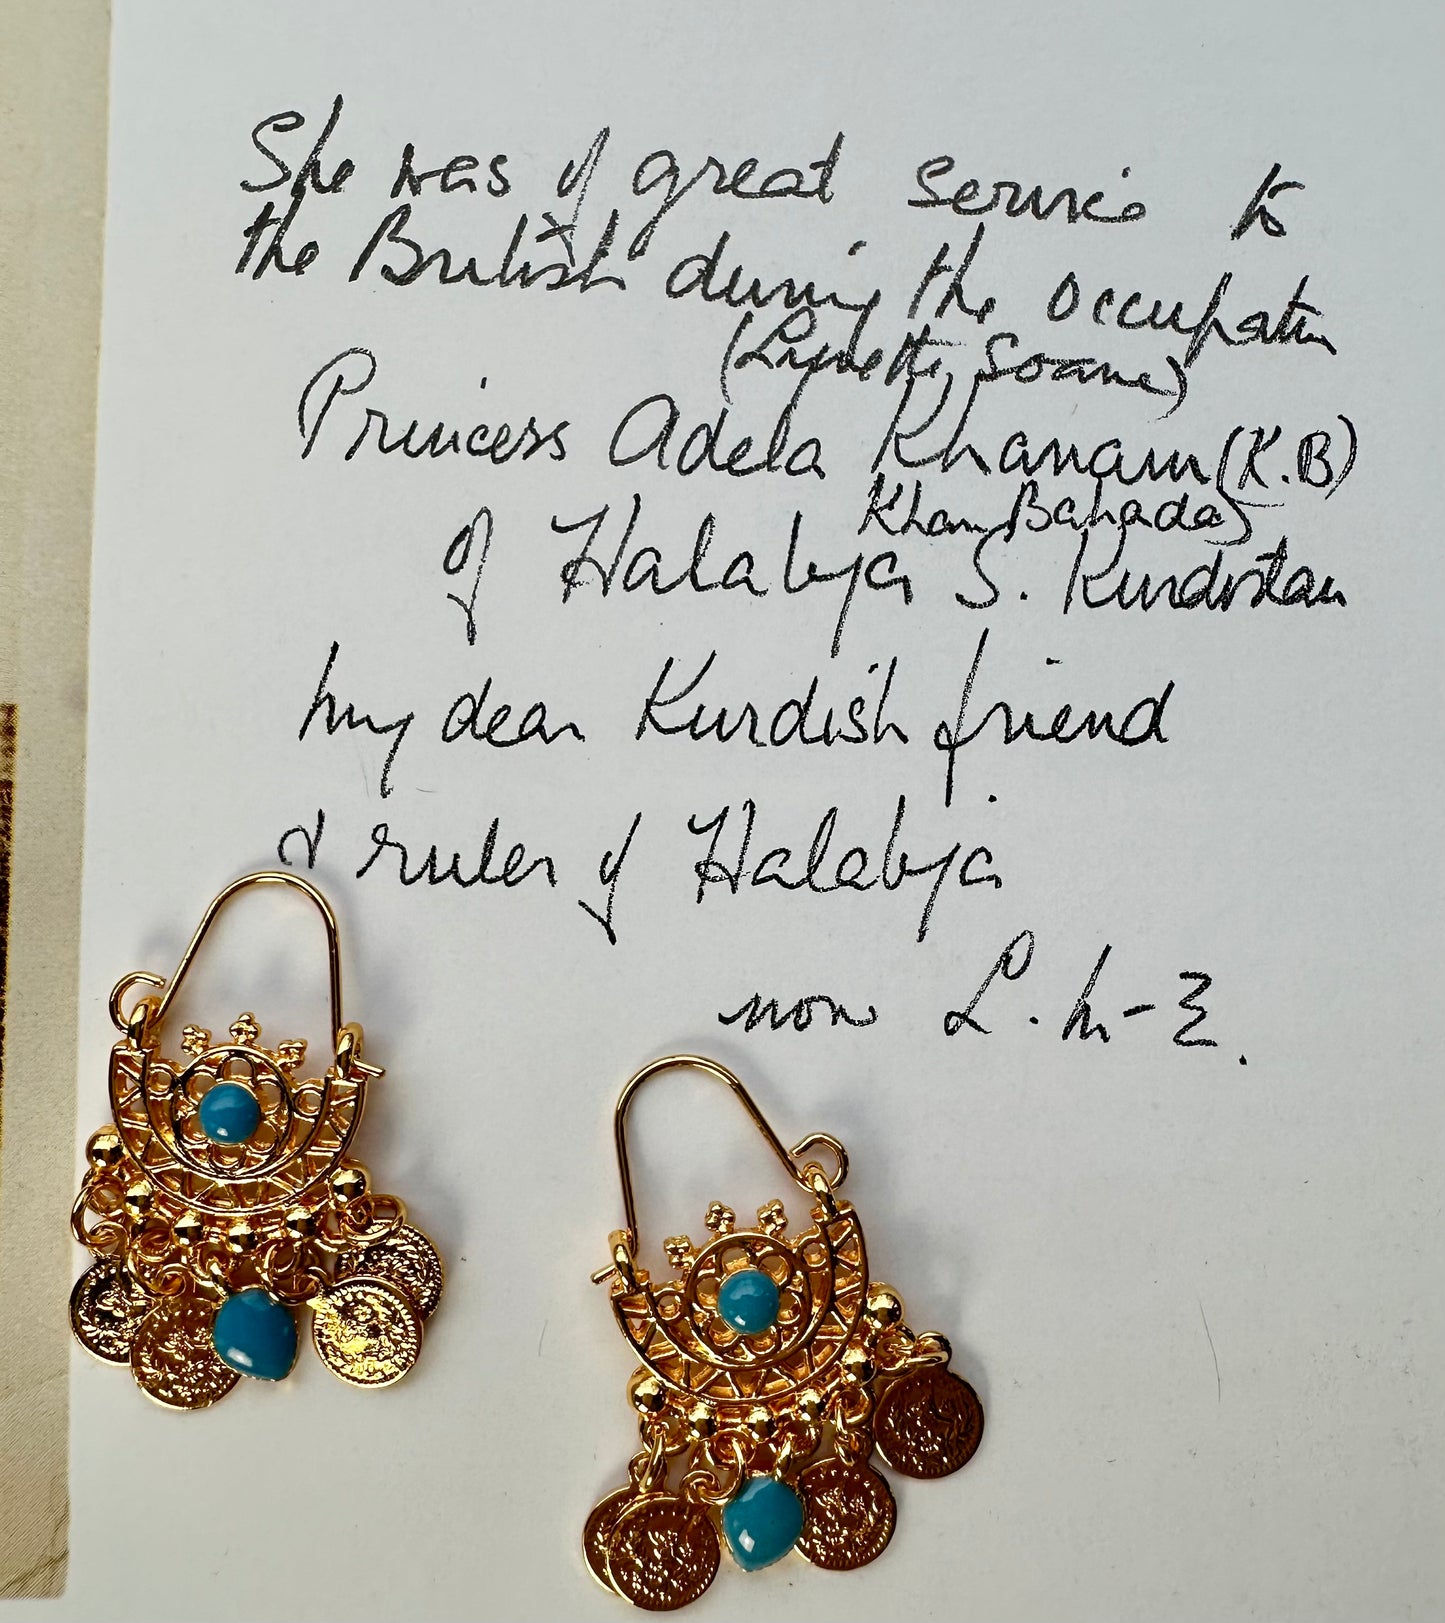 She was of great service to
the British during the Occupation
(Lynette Soane)
Princess Adela Khanam (K.B)
Khan Bahadar
of Halabja S. Kurdistan
my dear Kurdish friend
& ruler of Halabja
now L. M-E.